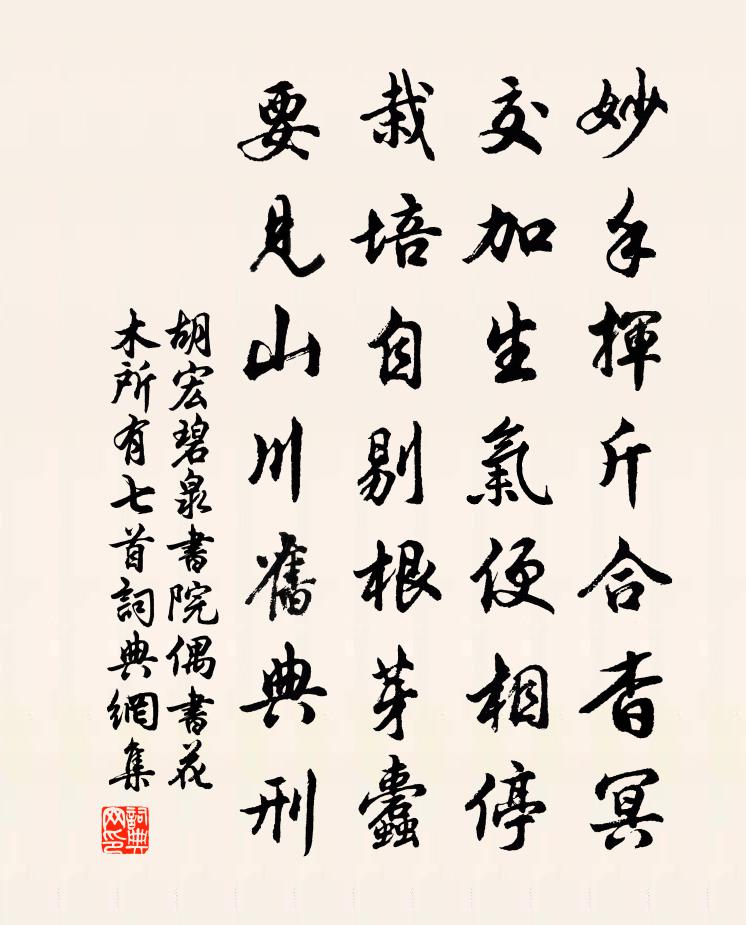 妙手揮斤合杳冥
交加生氣便相停
栽培自剔根芽蠹
要見山川舊典刑
胡宏碧泉書院偶書花
木所有七首詞典網集
詞典網印